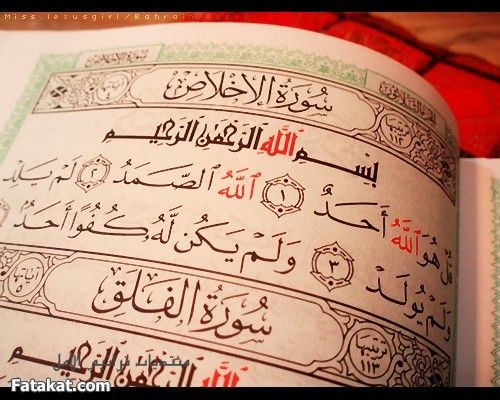 Miss.lexusgirl/Bahrain.Roseta
سُورَةُ الإِخْلَاصِ
بِسْمِ ٱللَّهِ ٱلرَّحْمَٰنِ ٱلرَّحِيمِ
قُلْ هُوَ ٱللَّهُ أَحَدٌ ١ ٱللَّهُ ٱلصَّمَدُ ٢ لَمْ يَلِدْ
وَلَمْ يُولَدْ ٣ وَلَمْ يَكُن لَّهُۥ كُفُوًا أَحَدٌ
سُورَةُ الفَلَقِ
ترتيبها ١١٣
آياتها ٥
ٱللَّهِ ٱلرَّحْمَٰنِ ٱلرَّحِيمِ
Fatakat.com